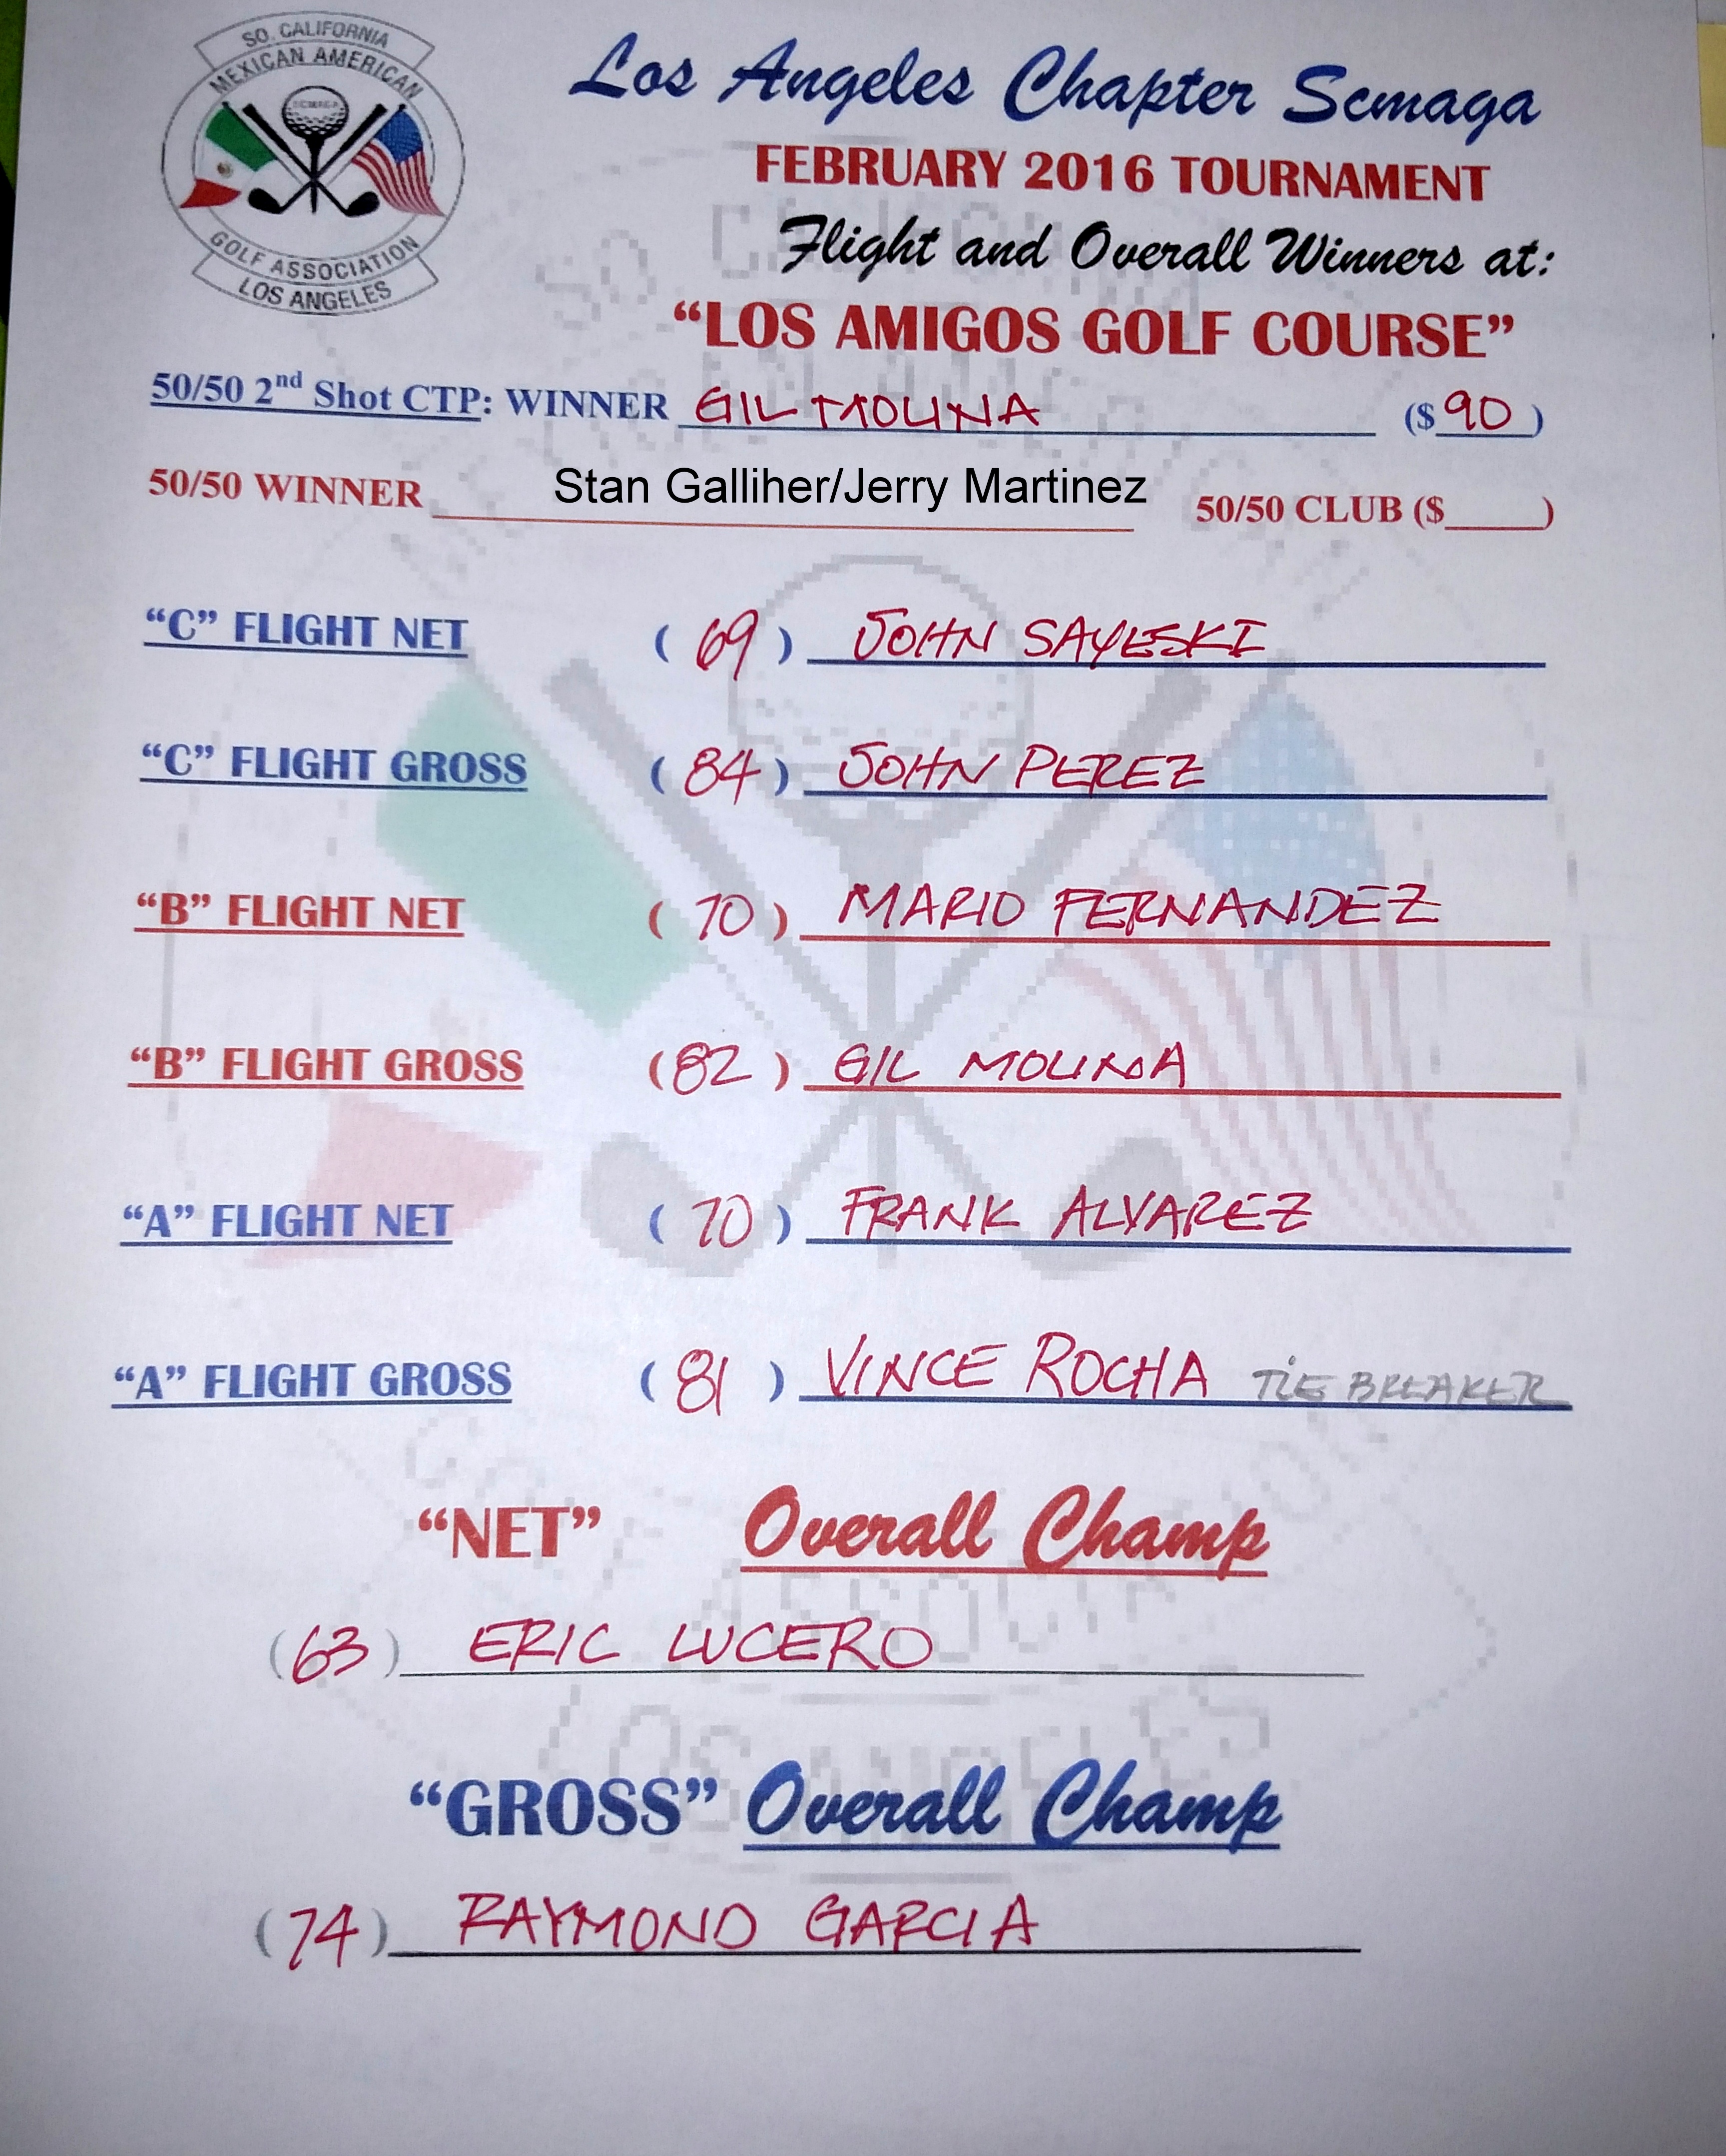 SO. CALIFORNIA
MEXICAN AMERICAN
SCMAGA
GOLF ASSOCIATION
LOS ANGELES
Los Angeles Chapter Scmaga
FEBRUARY 2016 TOURNAMENT
Flight and Overall Winners at:
“LOS AMIGOS GOLF COURSE”
50/50 2nd Shot CTP: WINNER GIL MOLINA ($90)
50/50 WINNER Stan Galliher/Jerry Martinez 50/50 CLUB ($_____)
“C” FLIGHT NET (69) JOHN SAYESKI
“C” FLIGHT GROSS (84) JOHN PEREZ
“B” FLIGHT NET (70) MARIO FERNANDEZ
“B” FLIGHT GROSS (82) GIL MOLINA
“A” FLIGHT NET (70) FRANK ALVAREZ
“A” FLIGHT GROSS (81) VINCE ROCHA TIE BREAKER
“NET” Overall Champ
(63) ERIC LUCERO
“GROSS” Overall Champ
(74) RAYMOND GARCIA